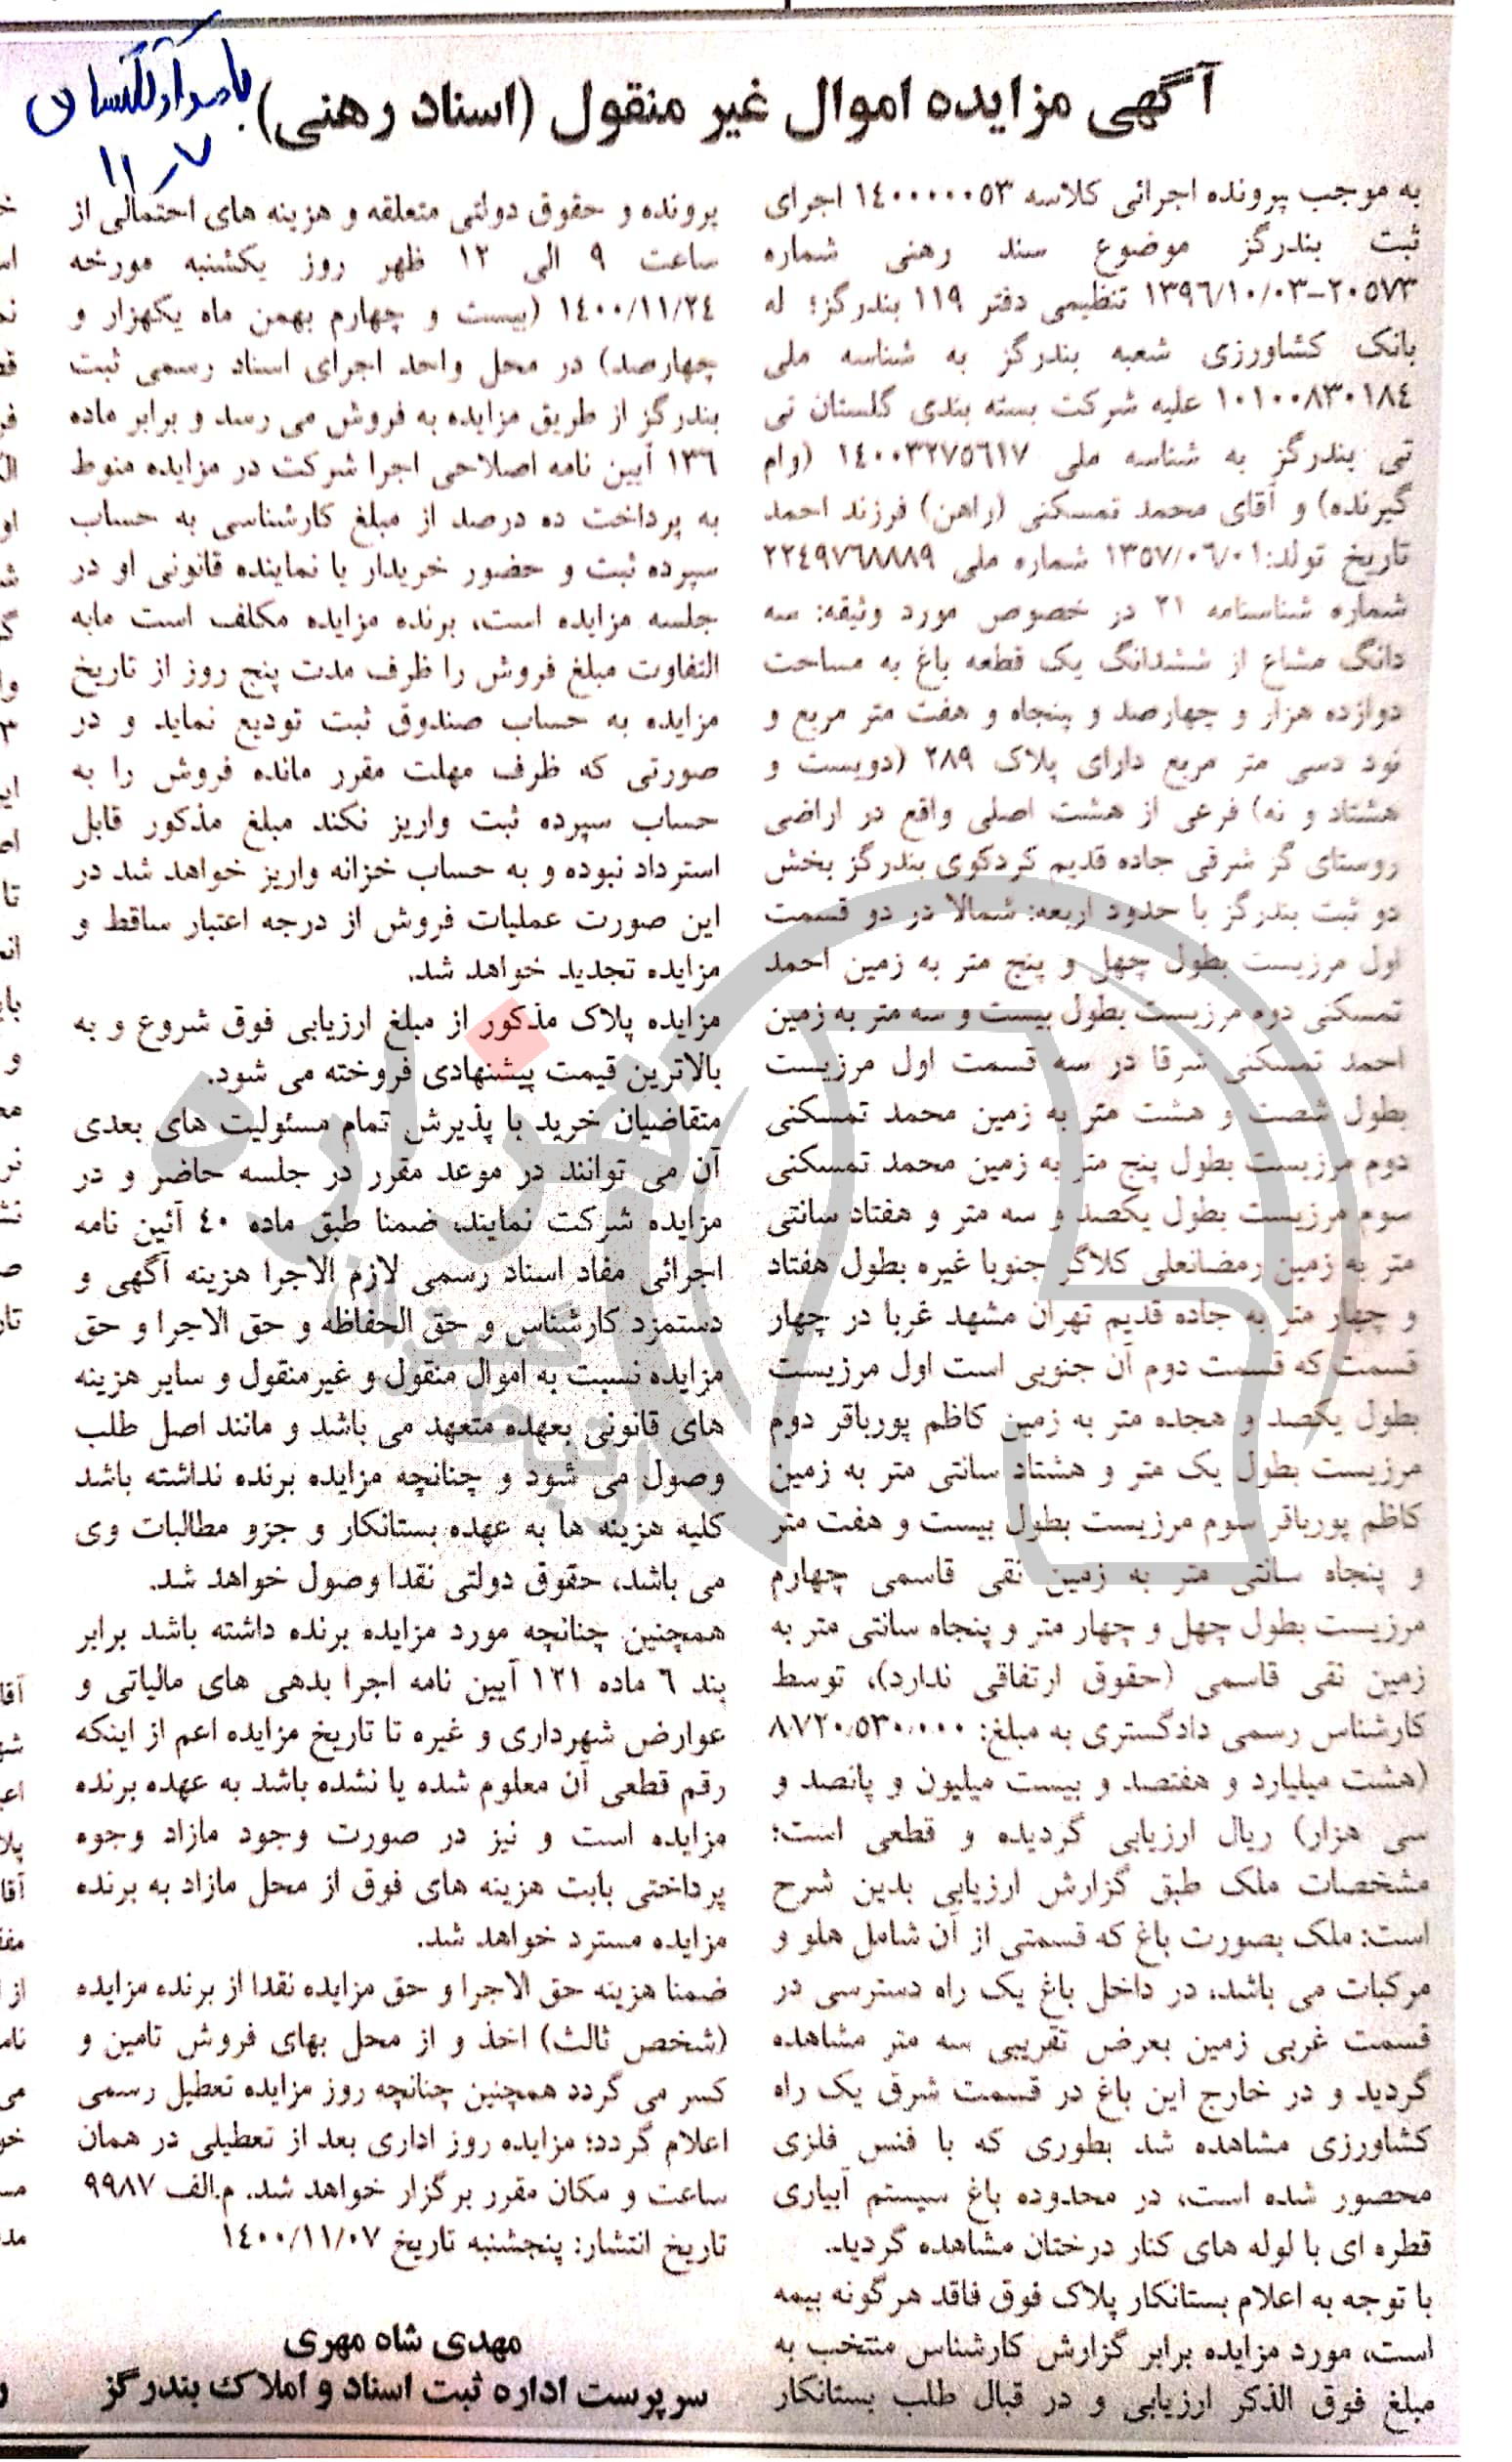 آگهی مزایده اموال غیر منقول (اسناد رهنی)
بامداد گلستان
۱۱/۷
به موجب پرونده اجرائی کلاسه ۱۴۰۰۰۰۰۵۳ اجرای
ثبت بندرگز موضوع سند رهنی شماره
۲۰۵۷۳-۱۳۹۶/۱۰/۰۳ تنظیمی دفتر ۱۱۹ بندرگز؛ له
بانک کشاورزی شعبه بندرگز به شناسه ملی
۱۰۱۰۰۸۳۰۱۸۴ علیه شرکت بسته بندی گلستان تی
تی بندرگز به شناسه ملی ۱۴۰۰۳۲۷۵۶۱۷ (وام
گیرنده) و آقای محمد تمسکنی (راهن) فرزند احمد
تاریخ تولد: ۱۳۵۷/۰۶/۰۱ شماره ملی ۲۲۴۹۷۶۸۸۸۹
شماره شناسنامه ۲۱ در خصوص مورد وثیقه: سه
دانگ مشاع از ششدانگ یک قطعه باغ به مساحت
دوازده هزار و چهارصد و پنجاه و هفت متر مربع و
نود دسی متر مربع دارای پلاک ۲۸۹ (دویست و
هشتاد و نه) فرعی از هشت اصلی واقع در اراضی
روستای گز شرقی جاده قدیم کردکوی بندرگز بخش
دو ثبت بندرگز با حدود اربعه: شمالا در دو قسمت
اول مرزیست بطول چهل و پنج متر به زمین احمد
تمسکنی دوم مرزیست بطول بیست و سه متر به زمین
احمد تمسکنی شرقا در سه قسمت اول مرزیست
بطول شصت و هشت متر به زمین محمد تمسکنی
دوم مرزیست بطول پنج متر به زمین محمد تمسکنی
سوم مرزیست بطول یکصد و سه متر و هفتاد سانتی
متر به زمین رمضانعلی کلاگر جنوبا غیره بطول هفتاد
و چهار متر به جاده قدیم تهران مشهد غربا در چهار
قسمت که قسمت دوم آن جنوبی است اول مرزیست
بطول یکصد و هجده متر به زمین کاظم پورباقر دوم
مرزیست بطول یک متر و هشتاد سانتی متر به زمین
کاظم پورباقر سوم مرزیست بطول بیست و هفت متر
و پنجاه سانتی متر به زمین نقی قاسمی چهارم
مرزیست بطول چهل و چهار متر و پنجاه سانتی متر به
زمین نقی قاسمی (حقوق ارتفاقی ندارد)، توسط
کارشناس رسمی دادگستری به مبلغ: ۸،۷۲۰،۵۳۰،۰۰۰
(هشت میلیارد و هفتصد و بیست میلیون و پانصد و
سی هزار) ریال ارزیابی گردیده و قطعی است؛
مشخصات ملک طبق گزارش ارزیابی بدین شرح
است: ملک بصورت باغ که قسمتی از آن شامل هلو و
مرکبات می باشد، در داخل باغ یک راه دسترسی در
قسمت غربی زمین بعرض تقریبی سه متر مشاهده
گردید و در خارج این باغ در قسمت شرق یک راه
کشاورزی مشاهده شد بطوری که با فنس فلزی
محصور شده است، در محدوده باغ سیستم آبیاری
قطره ای با لوله های کنار درختان مشاهده گردید.
با توجه به اعلام بستانکار پلاک فوق فاقد هرگونه بیمه
است، مورد مزایده برابر گزارش کارشناس منتخب به
مبلغ فوق الذکر ارزیابی و در قبال طلب بستانکار
پرونده و حقوق دولتی متعلقه و هزینه های احتمالی از
ساعت ۹ الی ۱۲ ظهر روز یکشنبه مورخه
۱۴۰۰/۱۱/۲۴ (بیست و چهارم بهمن ماه یکهزار و
چهارصد) در محل واحد اجرای اسناد رسمی ثبت
بندرگز از طریق مزایده به فروش می رسد و برابر ماده
۱۳۶ آیین نامه اصلاحی اجرا شرکت در مزایده منوط
به پرداخت ده درصد از مبلغ کارشناسی به حساب
سپرده ثبت و حضور خریدار یا نماینده قانونی او در
جلسه مزایده است، برنده مزایده مکلف است مابه
التفاوت مبلغ فروش را ظرف مدت پنج روز از تاریخ
مزایده به حساب صندوق ثبت تودیع نماید و در
صورتی که ظرف مهلت مقرر مانده فروش را به
حساب سپرده ثبت واریز نکند مبلغ مذکور قابل
استرداد نبوده و به حساب خزانه واریز خواهد شد در
این صورت عملیات فروش از درجه اعتبار ساقط و
مزایده تجدید خواهد شد.
مزایده پلاک مذکور از مبلغ ارزیابی فوق شروع و به
بالاترین قیمت پیشنهادی فروخته می شود.
متقاضیان خرید با پذیرش تمام مسئولیت های بعدی
آن می توانند در موعد مقرر در جلسه حاضر و در
مزایده شرکت نمایند، ضمنا طبق ماده ۴۰ آئین نامه
اجرائی مفاد اسناد رسمی لازم الاجرا هزینه آگهی و
دستمزد کارشناس و حق الحفاظه و حق الاجرا و حق
مزایده نسبت به اموال منقول و غیرمنقول و سایر هزینه
های قانونی بعهده متعهد می باشد و مانند اصل طلب
وصول می شود و چنانچه مزایده برنده نداشته باشد
کلیه هزینه ها به عهده بستانکار و جزو مطالبات وی
می باشد، حقوق دولتی نقدا وصول خواهد شد.
همچنین چنانچه مورد مزایده برنده داشته باشد برابر
بند ۶ ماده ۱۲۱ آیین نامه اجرا بدهی های مالیاتی و
عوارض شهرداری و غیره تا تاریخ مزایده اعم از اینکه
رقم قطعی آن معلوم شده یا نشده باشد به عهده برنده
مزایده است و نیز در صورت وجود مازاد وجوه
پرداختی بابت هزینه های فوق از محل مازاد به برنده
مزایده مسترد خواهد شد.
ضمنا هزینه حق الاجرا و حق مزایده نقدا از برنده مزایده
(شخص ثالث) اخذ و از محل بهای فروش تامین و
کسر می گردد همچنین چنانچه روز مزایده تعطیل رسمی
اعلام گردد؛ مزایده روز اداری بعد از تعطیلی در همان
ساعت و مکان مقرر برگزار خواهد شد. م.الف ۹۹۸۷
تاریخ انتشار: پنجشنبه تاریخ ۱۴۰۰/۱۱/۰۷
مهدی شاه مهری
سرپرست اداره ثبت اسناد و املاک بندرگز